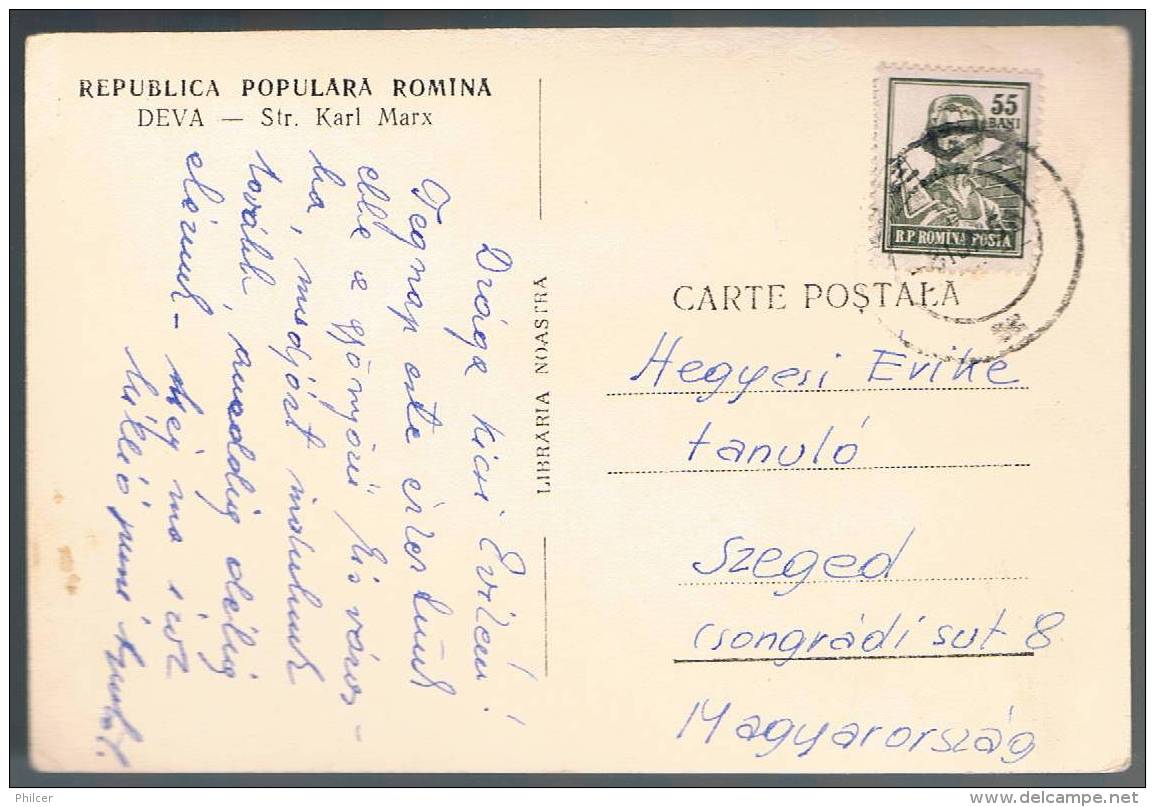 REPUBLICA POPULARĂ ROMÎNĂ
DEVA — Str. Karl Marx
Drága kicsi Evikém!
Tegnap este érkeztünk
ebbe a gyönyörű kisváros-
ba, másfért indulunk
tovább, ameddig délig
elérünk -
puszi
LIBRĂRIA NOASTRĂ
55
BANI
R.P. ROMINA POSTA
CARTE POȘTALĂ
Hegyesi Evike
tanuló
Szeged
Csongrádi sut 8
Magyarország
Philcer
www.delcampe.net